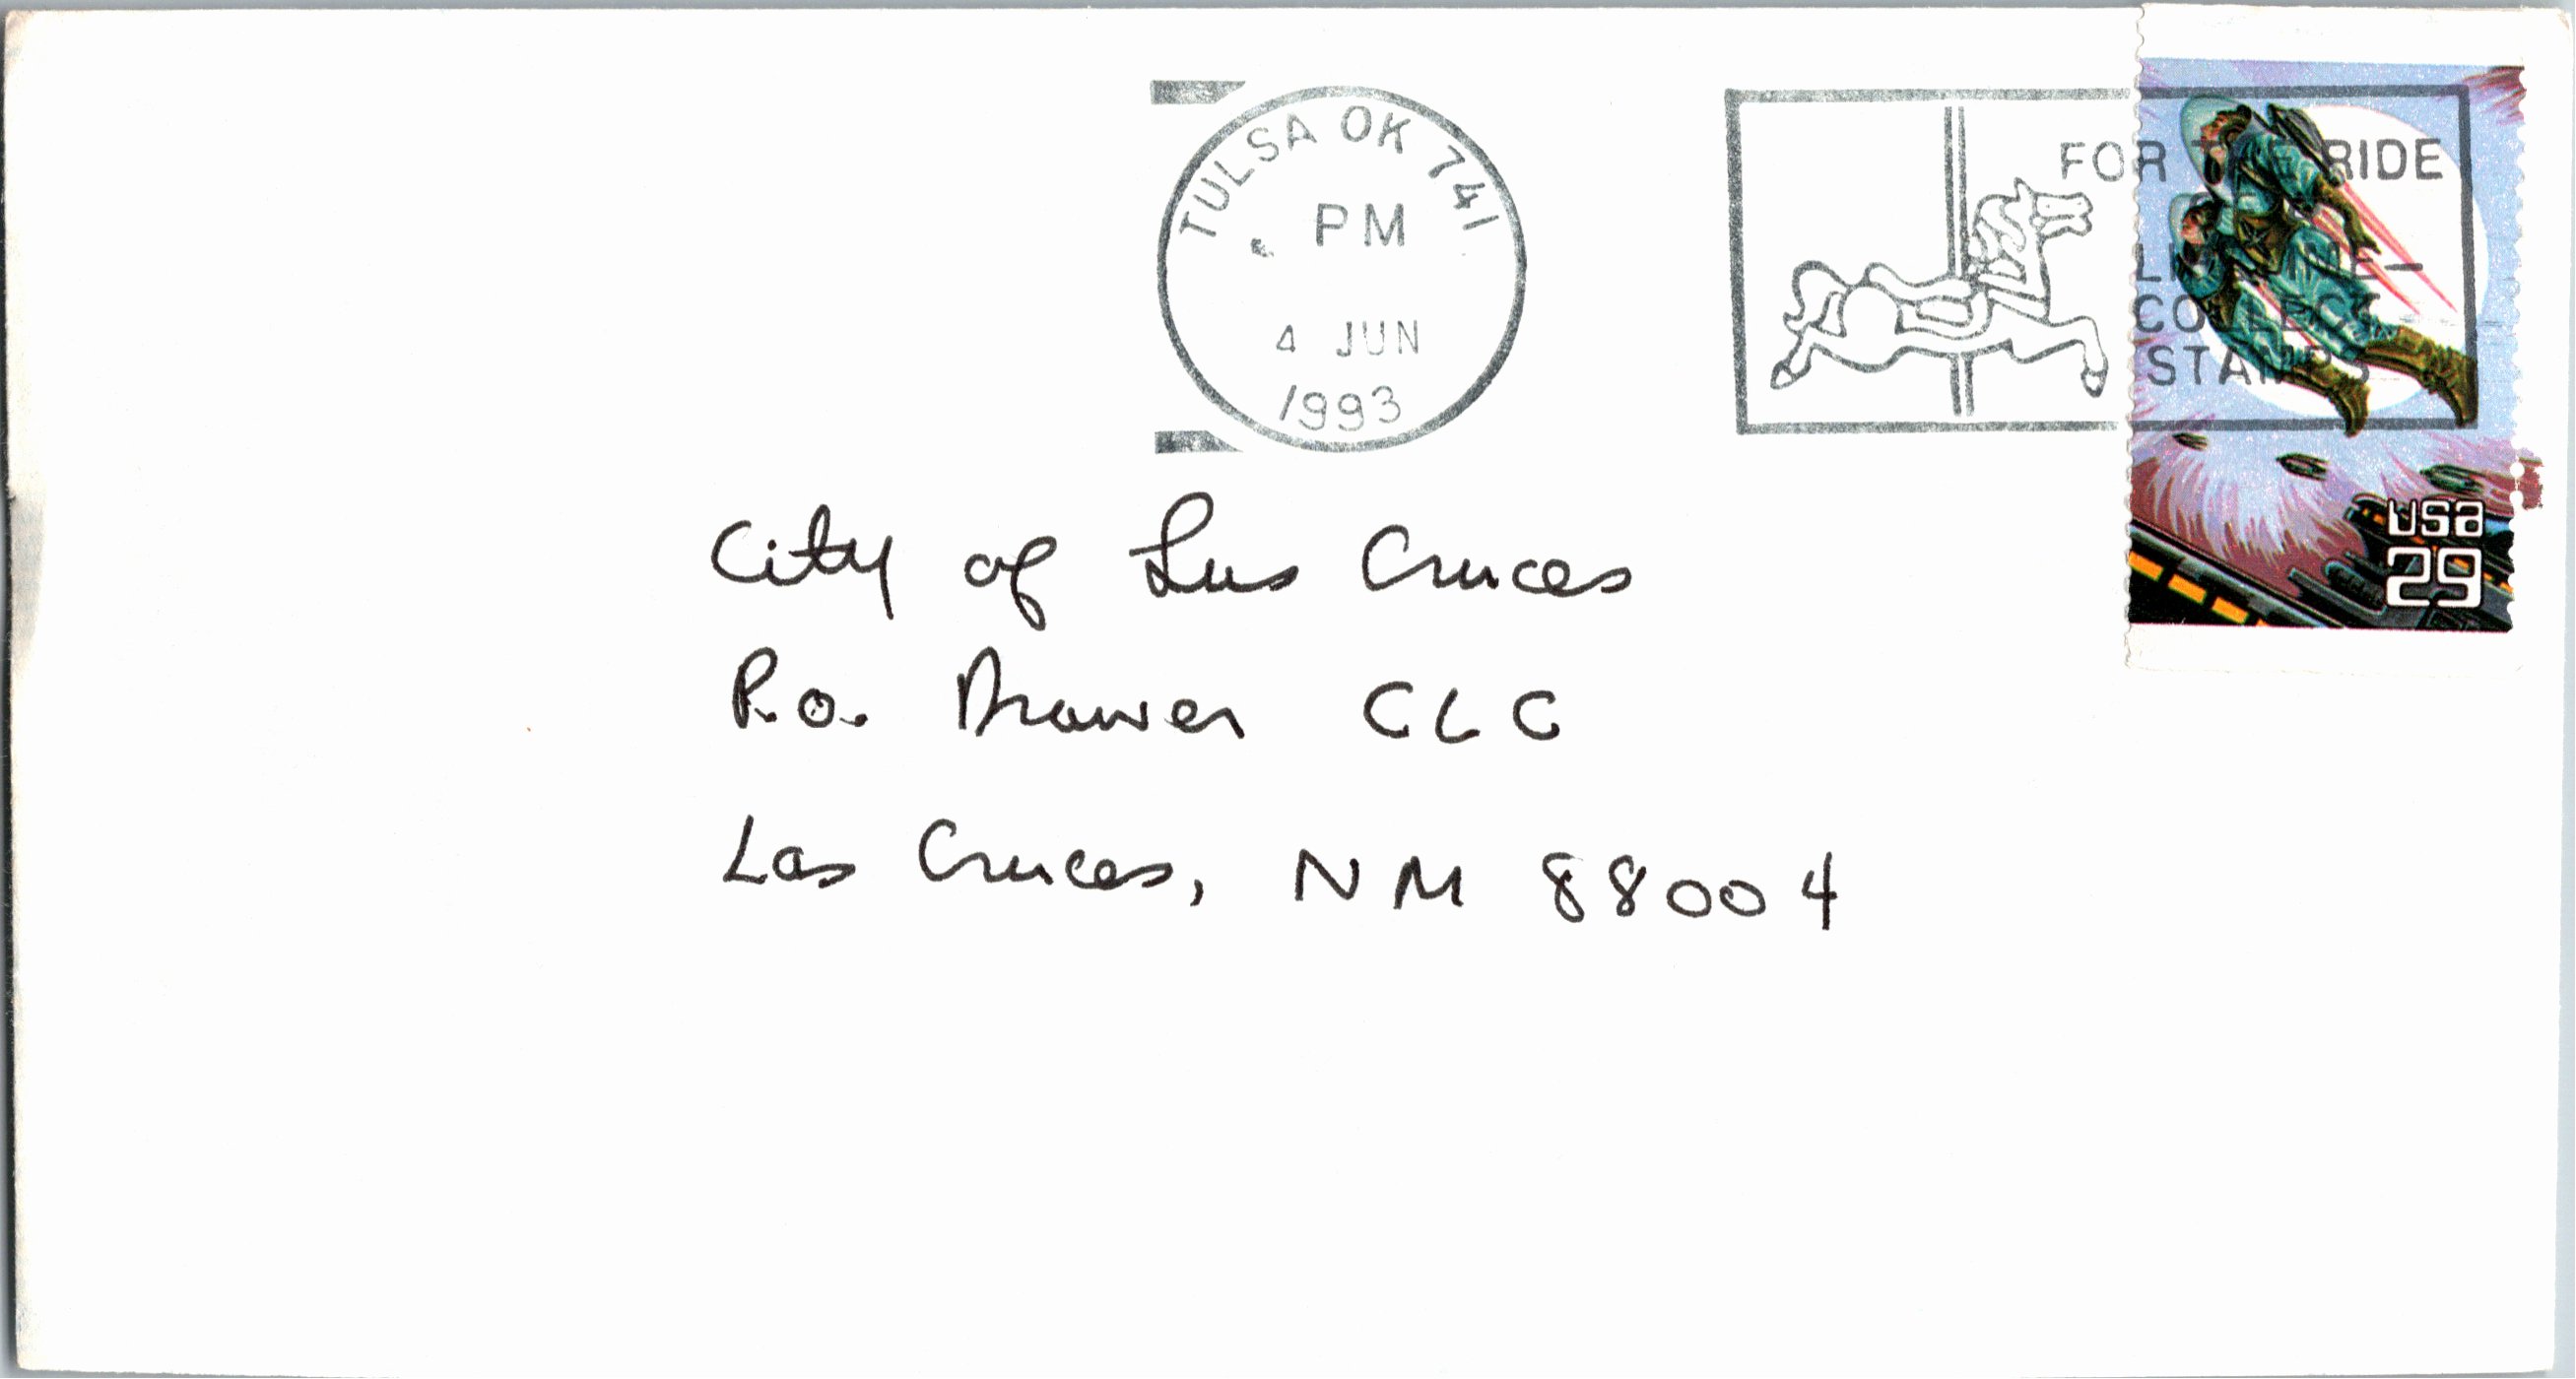 TULSA OK 741
PM
4 JUN
1993
FOR THE RIDE
OF A
LIFETIME-
COLLECT
STAMPS
usa
29
City of Las Cruces
P.O. Drawer CLC
Las Cruces, NM 88004